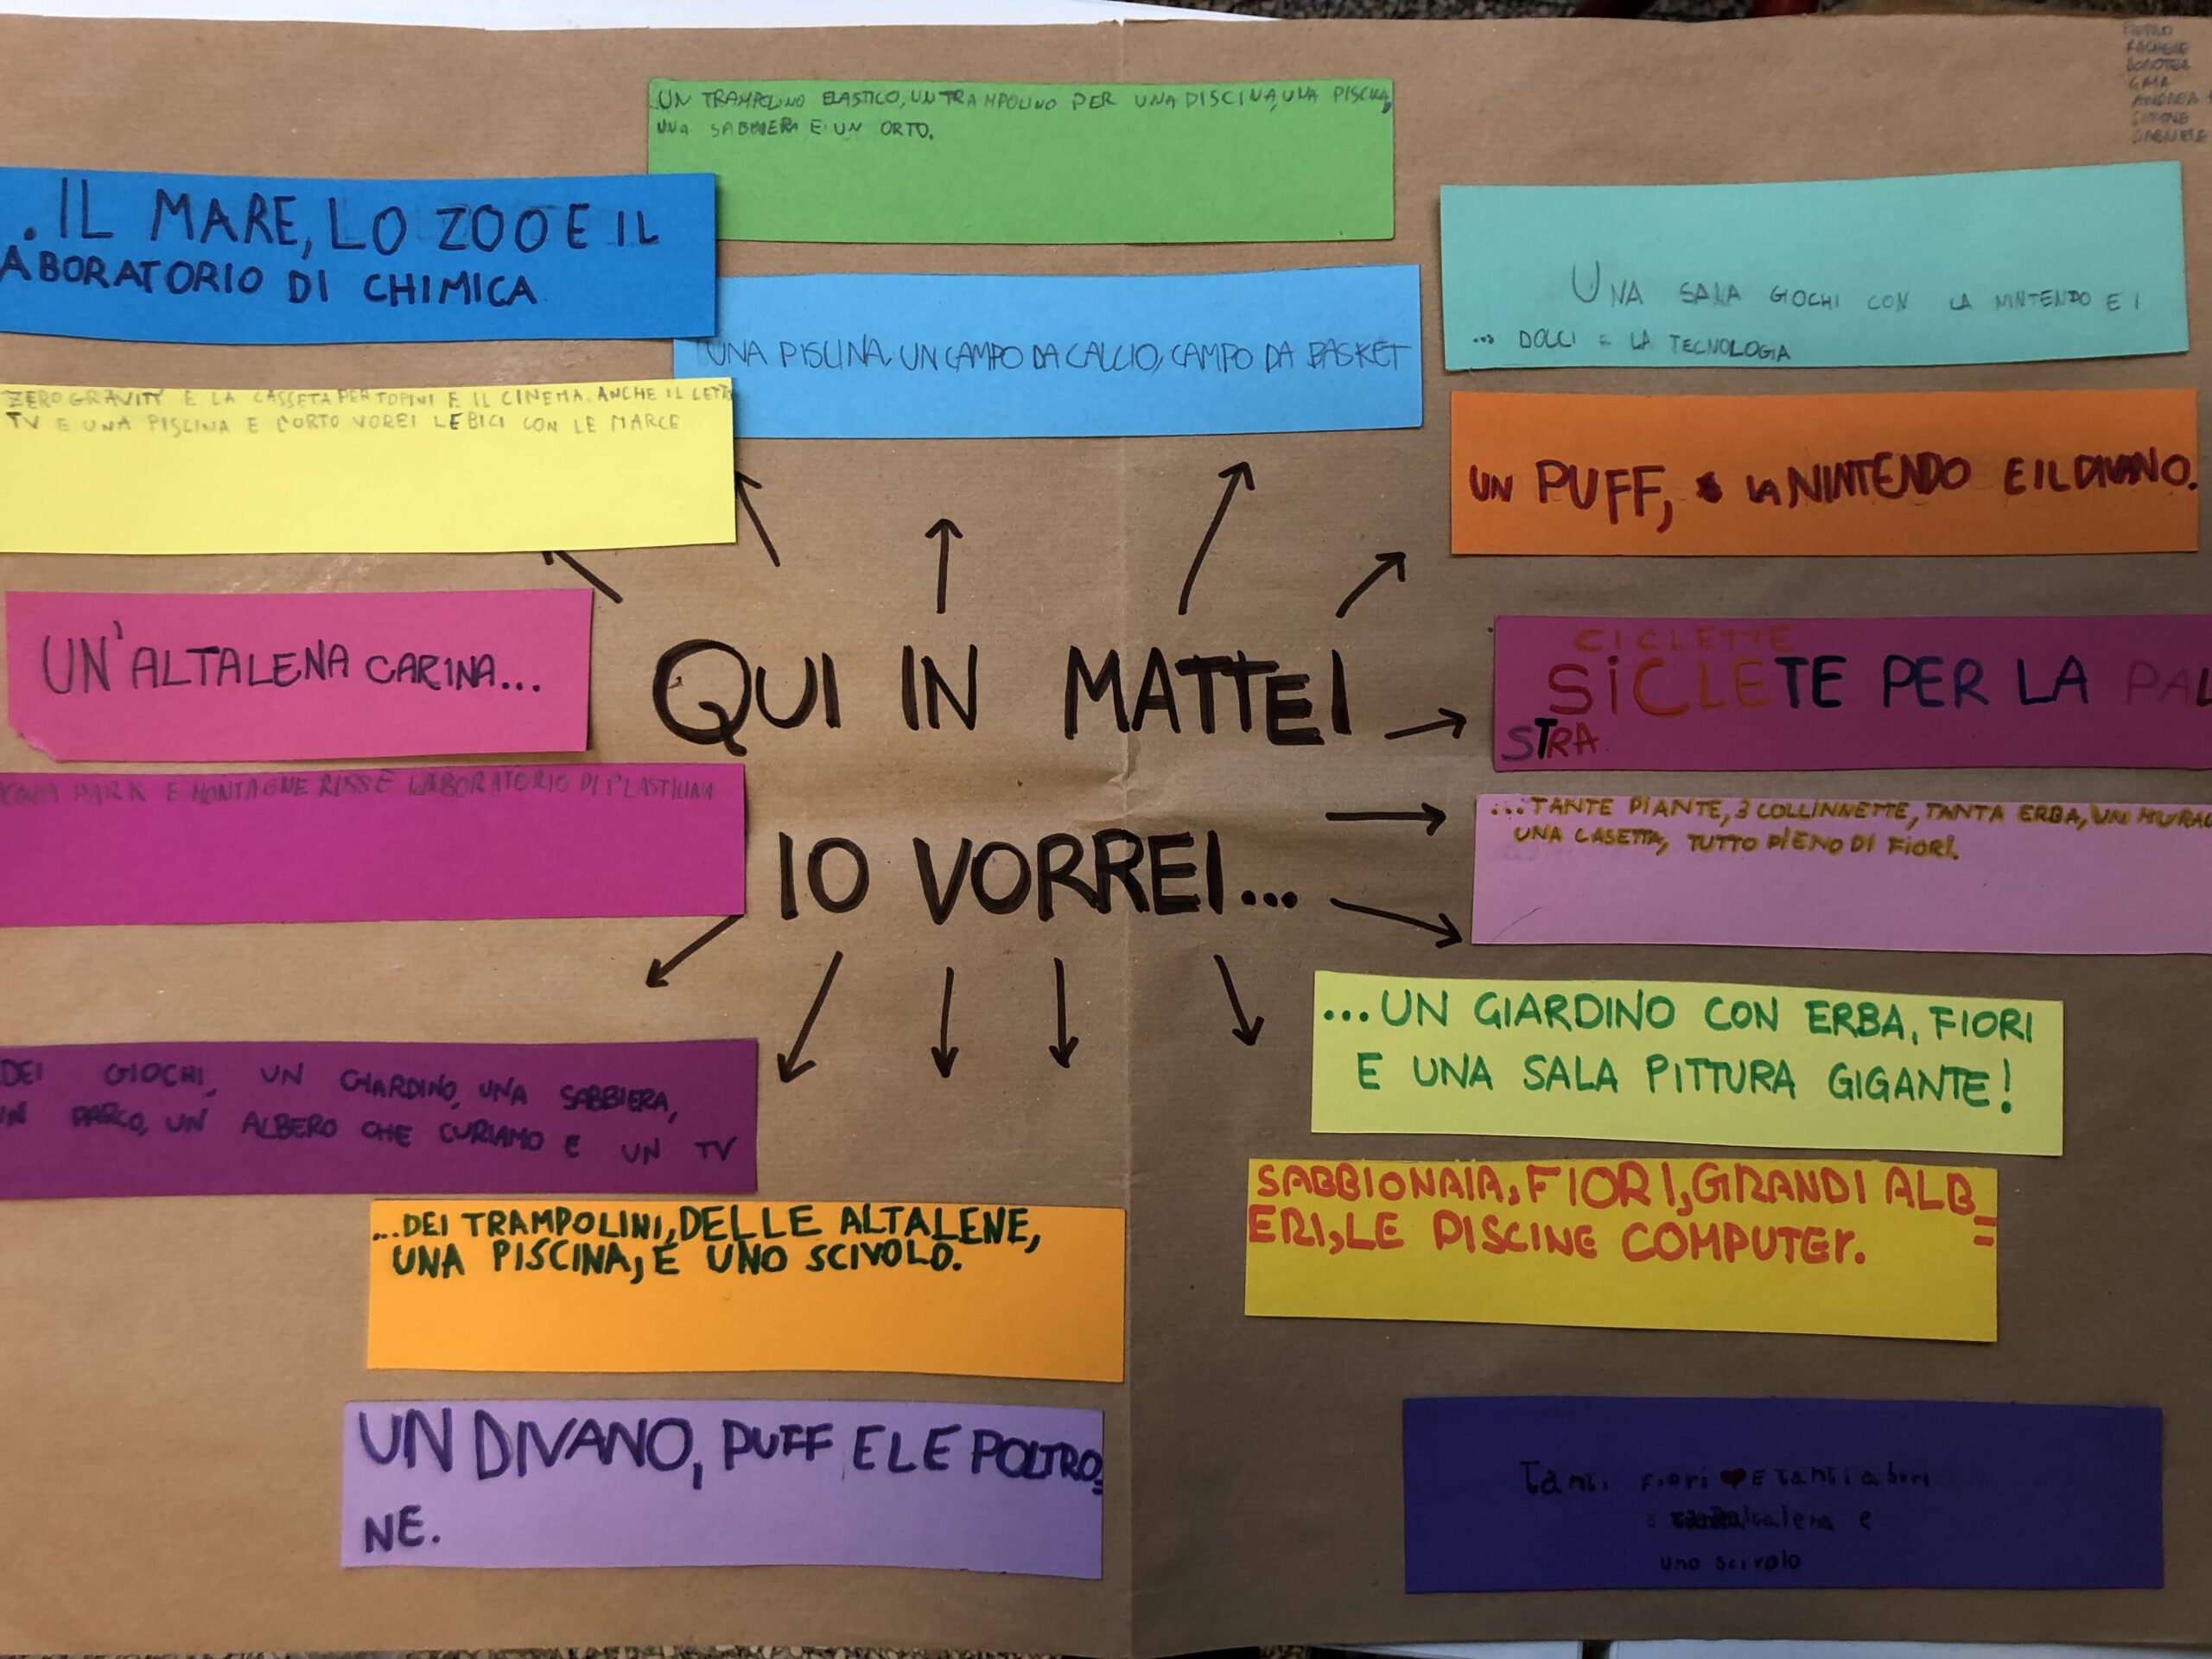 RACHELE
DOROTEA
GAIA
ANDREA
SIMONE
GABRIELE
UN TRAMPOLINO ELASTICO, UN TRAMPOLINO PER UNA DISCINA, UNA PISCINA,
UNA SABBIERA E UN ORTO.
.IL MARE, LO ZOO E IL
ABORATORIO DI CHIMICA
UNA PISCINA, UN CAMPO DA CALCIO, CAMPO DA BASKET
UNA SALA GIOCHI CON LA NINTENDO E I
... DOLCI E LA TECNOLOGIA
ZERO GRAVITY E LA CASSETA PER TOPINI E IL CINEMA. ANCHE IL LETTO
TV E UNA PISCINA E L'ORTO VOREI LE BICI CON LE MARCE
UN PUFF, LA NINTENDO E IL DIVANO.
UN'ALTALENA CARINA...
QUI IN MATTEI
IO VORREI...
CICLETTE
SiCLETE PER LA PAL
STRA
PARK E MONTAGNE RUSSE LABORATORIO DI PLASTILINA
...TANTE PIANTE, 3 COLLINNETTE, TANTA ERBA, UN MURAG
UNA CASETTA, TUTTO PIENO DI FIORI.
...UN GIARDINO CON ERBA, FIORI
E UNA SALA PITTURA GIGANTE!
DEI GIOCHI, UN GIARDINO, UNA SABBIERA,
UN PARCO, UN ALBERO CHE CURIAMO E UN TV
SABBIONAIA, FIORI, GRANDI ALB=
ERI, LE PISCINE COMPUTEr.
...DEI TRAMPOLINI, DELLE ALTALENE,
UNA PISCINA, E UNO SCIVOLO.
UN DIVANO, PUFF E LE POLTRO=
NE.
Tanti Fiori ❤ E tanti abori
E altalena e
uno scivolo